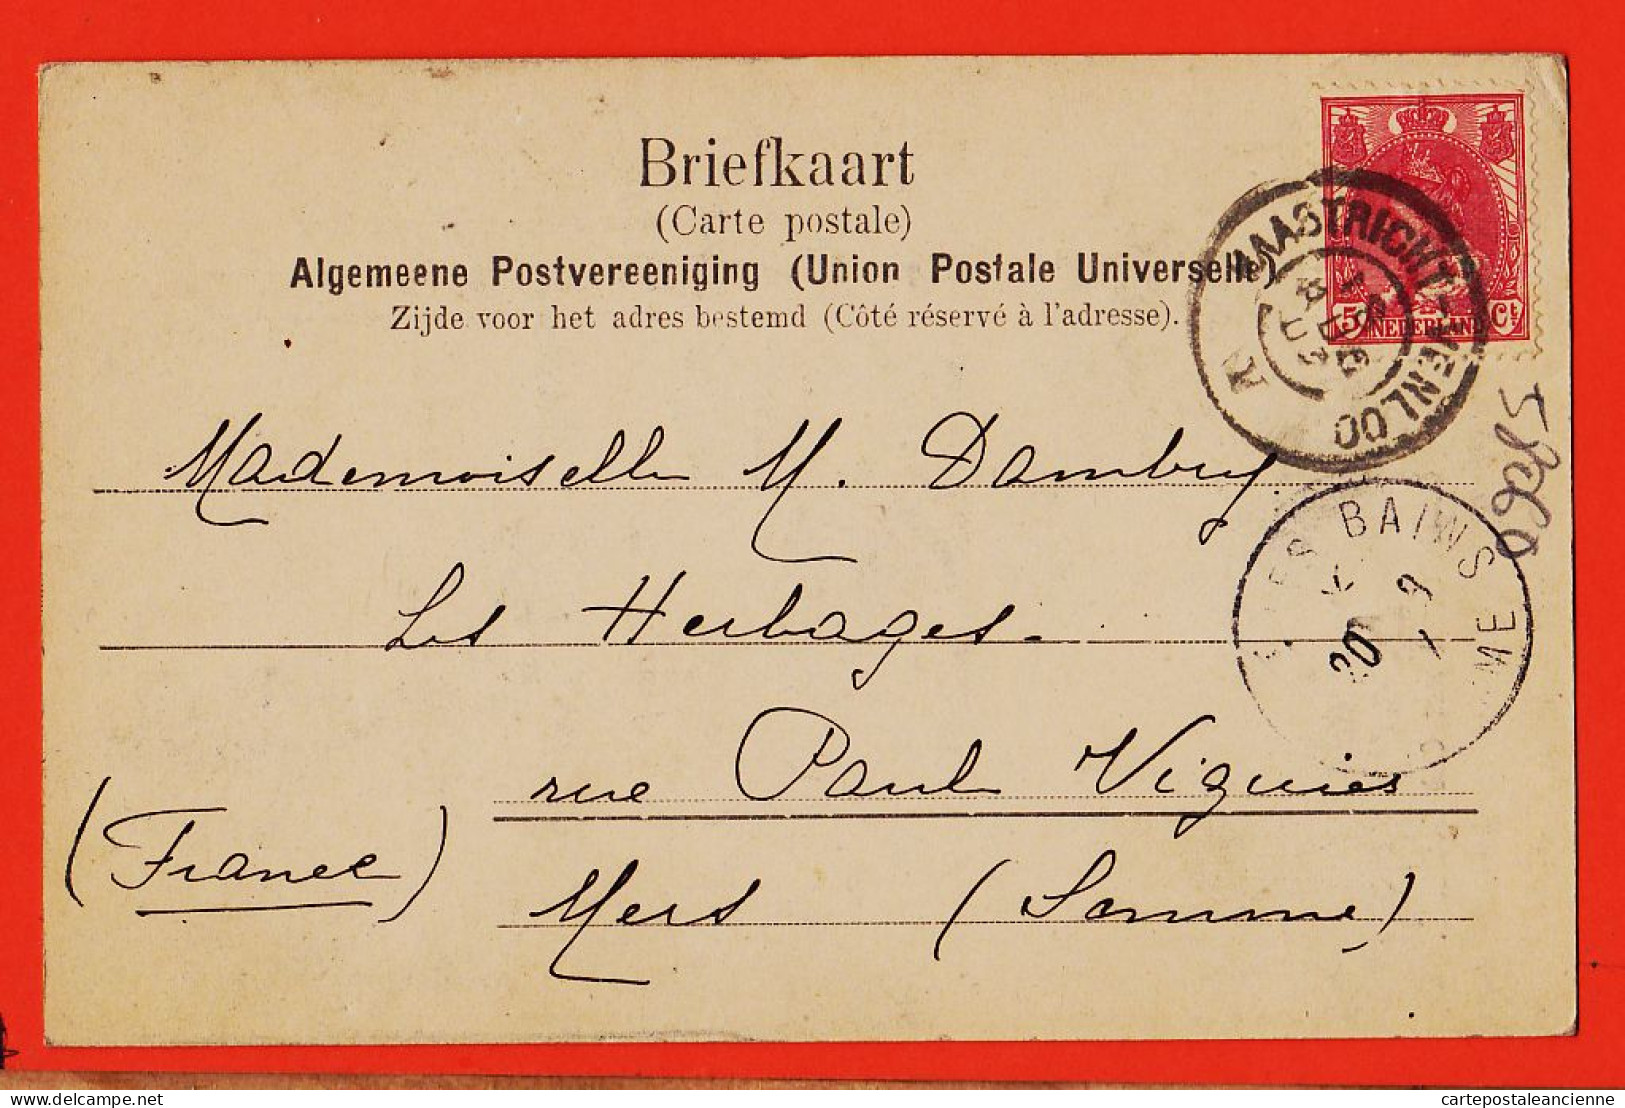 Briefkaart
(Carte postale)
Algemeene Postvereeniging (Union Postale Universelle)
Zijde voor het adres bestemd (Côté réservé à l'adresse).
5 NEDERLAND Ct
MAASTRICHT-VENLOO
N
Mademoiselle M. Dambry
Les Herbages.
rue Paul Viguiès
(France)
Mers (Somme)
BAINS
20
delcampe.net
cartepostaleancienne